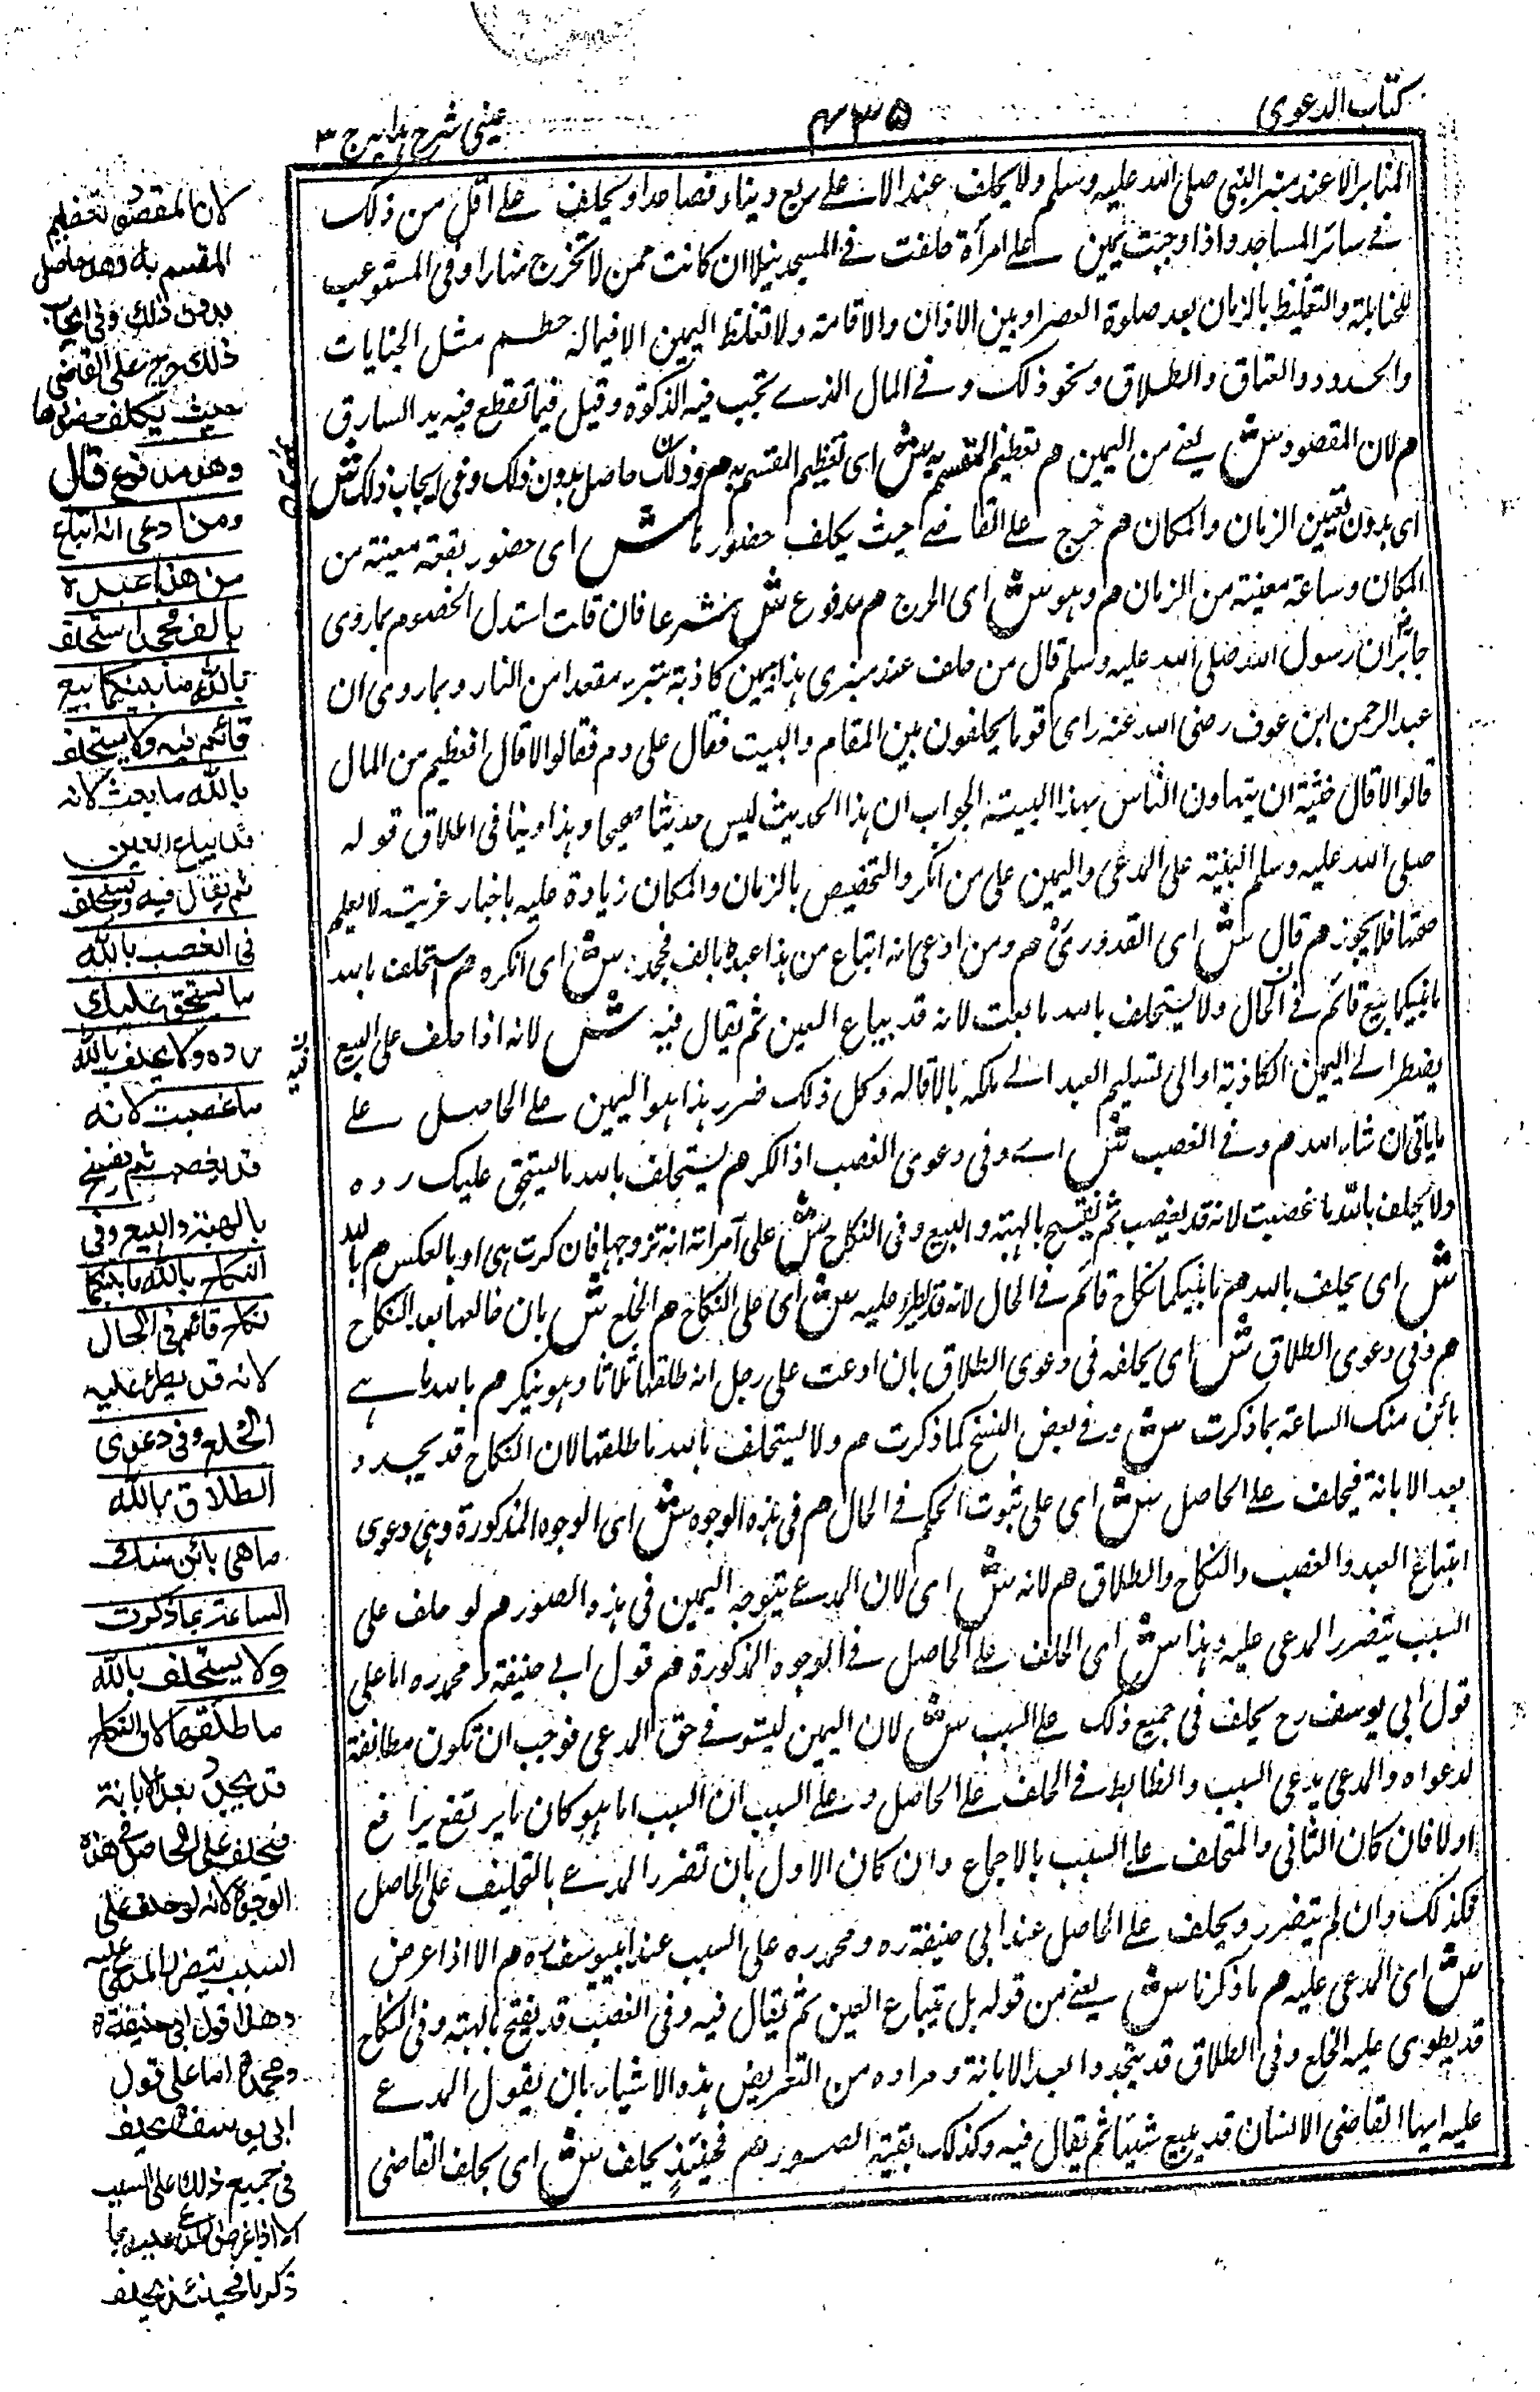 كتاب الدعوى
۴۳۵
عينى شرح هدايه ج ۳
المنابر الا عند منبر النبى صلى الله عليه وسلم ولا يحلف عند الا على ربع دينار فصاعدا ويحلف على اقل من ذلك
فى سائر المساجد واذا وجبت يمين على امرأة حلفت فى المسجد ليلا ان كانت ممن لا تخرج نهارا وفى المستوعب
للحنابلة والتغليظ بالزمان بعد صلوة العصر او بين الاذان والاقامة ولا تغلظ اليمين الا فيما له خطر مثل الجنايات
والحدود والعتاق والطلاق ونحو ذلك وفى المال الذى تجب فيه الزكوة وقيل فيما تقطع فيه يد السارق
م لان المقصود ش يعنى من اليمين م تعظيم المقسم به ش اى تعظيم المقسم به م وذلك حاصل بدون ذلك وفى ايجاب ذلك ش
اى بدون تعيين الزمان والمكان م حرج على القاضى حيث يكلف حضورها ش اى حضور بقعة معينة من
المكان وساعة معينة من الزمان م وهو ش اى الحرج م مدفوع ش شرعا فان قلت استدل الخصوم بما روى
جابر ان رسول الله صلى الله عليه وسلم قال من حلف عند منبرى هذا بيمين كاذبة تبوء مقعدا من النار وبما روى ان
عبد الرحمن ابن عوف رضى الله عنه راى قوما يحلفون بين المقام والبيت فقال على دم فقالوا لا قال افعظيم من المال
قالوا لا قال خشية ان يتهاون الناس بهذا البيت الجواب ان هذا الحديث ليس حديثا صحيحا وهذا وينافى اطلاق قوله
صلى الله عليه وسلم البينة على المدعى واليمين على من انكر والتخصيص بالزمان والمكان زيادة عليه باخبار غريبة لا يعلم
صحتها فلا يجوز م قال ش اى القدورى م ومن ادعى انه ابتاع من هذا عبده بالف فجحد ش اى انكره م استحلف بالله
ما بينكما بيع قائم فى الحال ولا يستحلف بالله ما بعت لانه قد يباع العين ثم يقال فيه ش لانه اذا حلف على البيع
يضطر الى اليمين الكاذبة او الى تسليم العبد الى ملكه بالاقالة وكل ذلك ضرر هذا هو اليمين على الحاصل على
ما ياتى ان شاء الله م وفى الغصب ش اى وفى دعوى الغصب اذا انكر م يستحلف بالله ما يستحق عليك رده
ولا يحلف بالله ما غصبت لانه قد يغصب ثم يفسخ بالهبة والبيع وفى النكاح ش على امراته انه تزوجها فان كرت هى او بالعكس م بالله
ش اى يحلف بالله م ما بينكما نكاح قائم فى الحال لانه قد يطرء عليه ش اى على النكاح م الخلع ش بان خالعها بعد النكاح
م وفى دعوى الطلاق ش اى يحلفه فى دعوى الطلاق بان ادعت على رجل انه طلقها ثلاثا وهو ينكر م بالله ما هى
بائن منك الساعة بما ذكرت ش وفى بعض النسخ كما ذكرت م ولا يستحلف بالله ما طلقها لان النكاح قد يجدد
بعد الابانة فيحلف على الحاصل ش اى على ثبوت الحكم فى الحال م فى هذه الوجوه ش اى الوجوه المذكورة وهى دعوى
ابتياع العبد والغصب والنكاح والطلاق م لانه ش اى لان المدعى يتوجه اليمين فى هذه الصور م لو حلف على
السبب يتضرر المدعى عليه وهذا ش اى الحلف على الحاصل فى الوجوه المذكورة م قول ابى حنيفة و محمد ره اما على
قول ابى يوسف رح يحلف فى جميع ذلك على السبب ش لان اليمين ليستوفى حق المدعى فوجب ان تكون مطابقة
لدعواه والمدعى يدعى السبب والضابط فى الحلف على الحاصل وعلى السبب ان السبب اما هو كان ما يرتفع برافع
اولا فان كان الثانى والمتحلف على السبب بالاجماع وان كان الاول بان تضرر المدعى بالتحليف على الحاصل
فكذلك وان لم يتضرر ويحلف على الحاصل عند ابى حنيفة ره ومحمد ره على السبب عند ابيوسف ره م الا اذا عرض
ش اى المدعى عليه م ما ذكرنا ش يعنى من قوله بل يتباع العين ثم يقال فيه وفى الغصب قد يفسخ بالهبة وفى النكاح
قد يطرى عليه الخلع وفى الطلاق قد يتجدد بعد الابانة ومراده من التعريض هذه الاشياء بان يقول المدعى
عليه ايها القاضى الانسان قد يبيع شيئا ثم يقال فيه وكذلك بقية الصور م فحينئذ يحلف ش اى يحلف القاضى
لان المقصود تعظيم
المقسم به وهو حاصل
بدون ذلك وفى ايجاب
ذلك حرج على القاضى
حيث يكلف حضورها
وهو مدفوع قال
ومن ادعى انه ابتاع
من هذا عبده
بالف فجحد استحلف
بالله ما بينكما بيع
قائم فيه ولا يستحلف
بالله ما بعت لانه
قد يباع العين
ثم يقال فيه ويستحلف
فى الغصب بالله
ما يستحق عليك
رده ولا يحلف بالله
ما غصبت لانه
قد يغصب ثم يفسخ
بالهبة والبيع وفى
النكاح بالله ما بينكما
نكاح قائم فى الحال
لانه قد يطرء عليه
الخلع وفى دعوى
الطلاق بالله
ما هى بائن منك
الساعة بما ذكرت
ولا يستحلف بالله
ما طلقها لان النكاح
قد يجدد بعد الابانة
فيحلف على الحاصل فى هذه
الوجوه لانه لو حلف على
السبب يتضرر المدعى عليه
وهذا قول ابى حنيفة ره
ومحمد ره اما على قول
ابى يوسف ره يحلف
فى جميع ذلك على السبب
الا اذا عرض المدعى عليه بما
ذكرنا فحينئذ يحلف